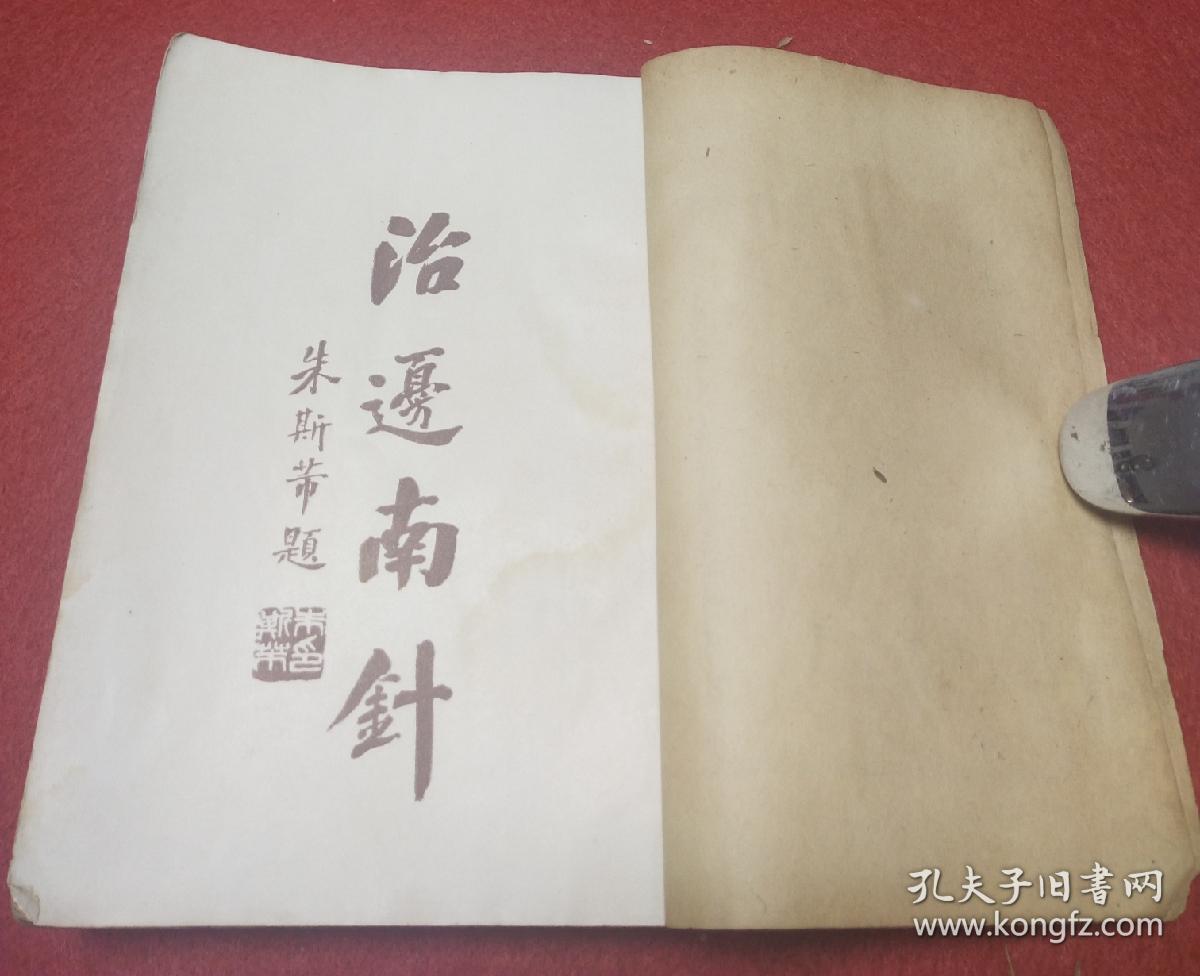 治邊南針
朱斯芾題
朱印斯芾
孔夫子旧書网
www.kongfz.com